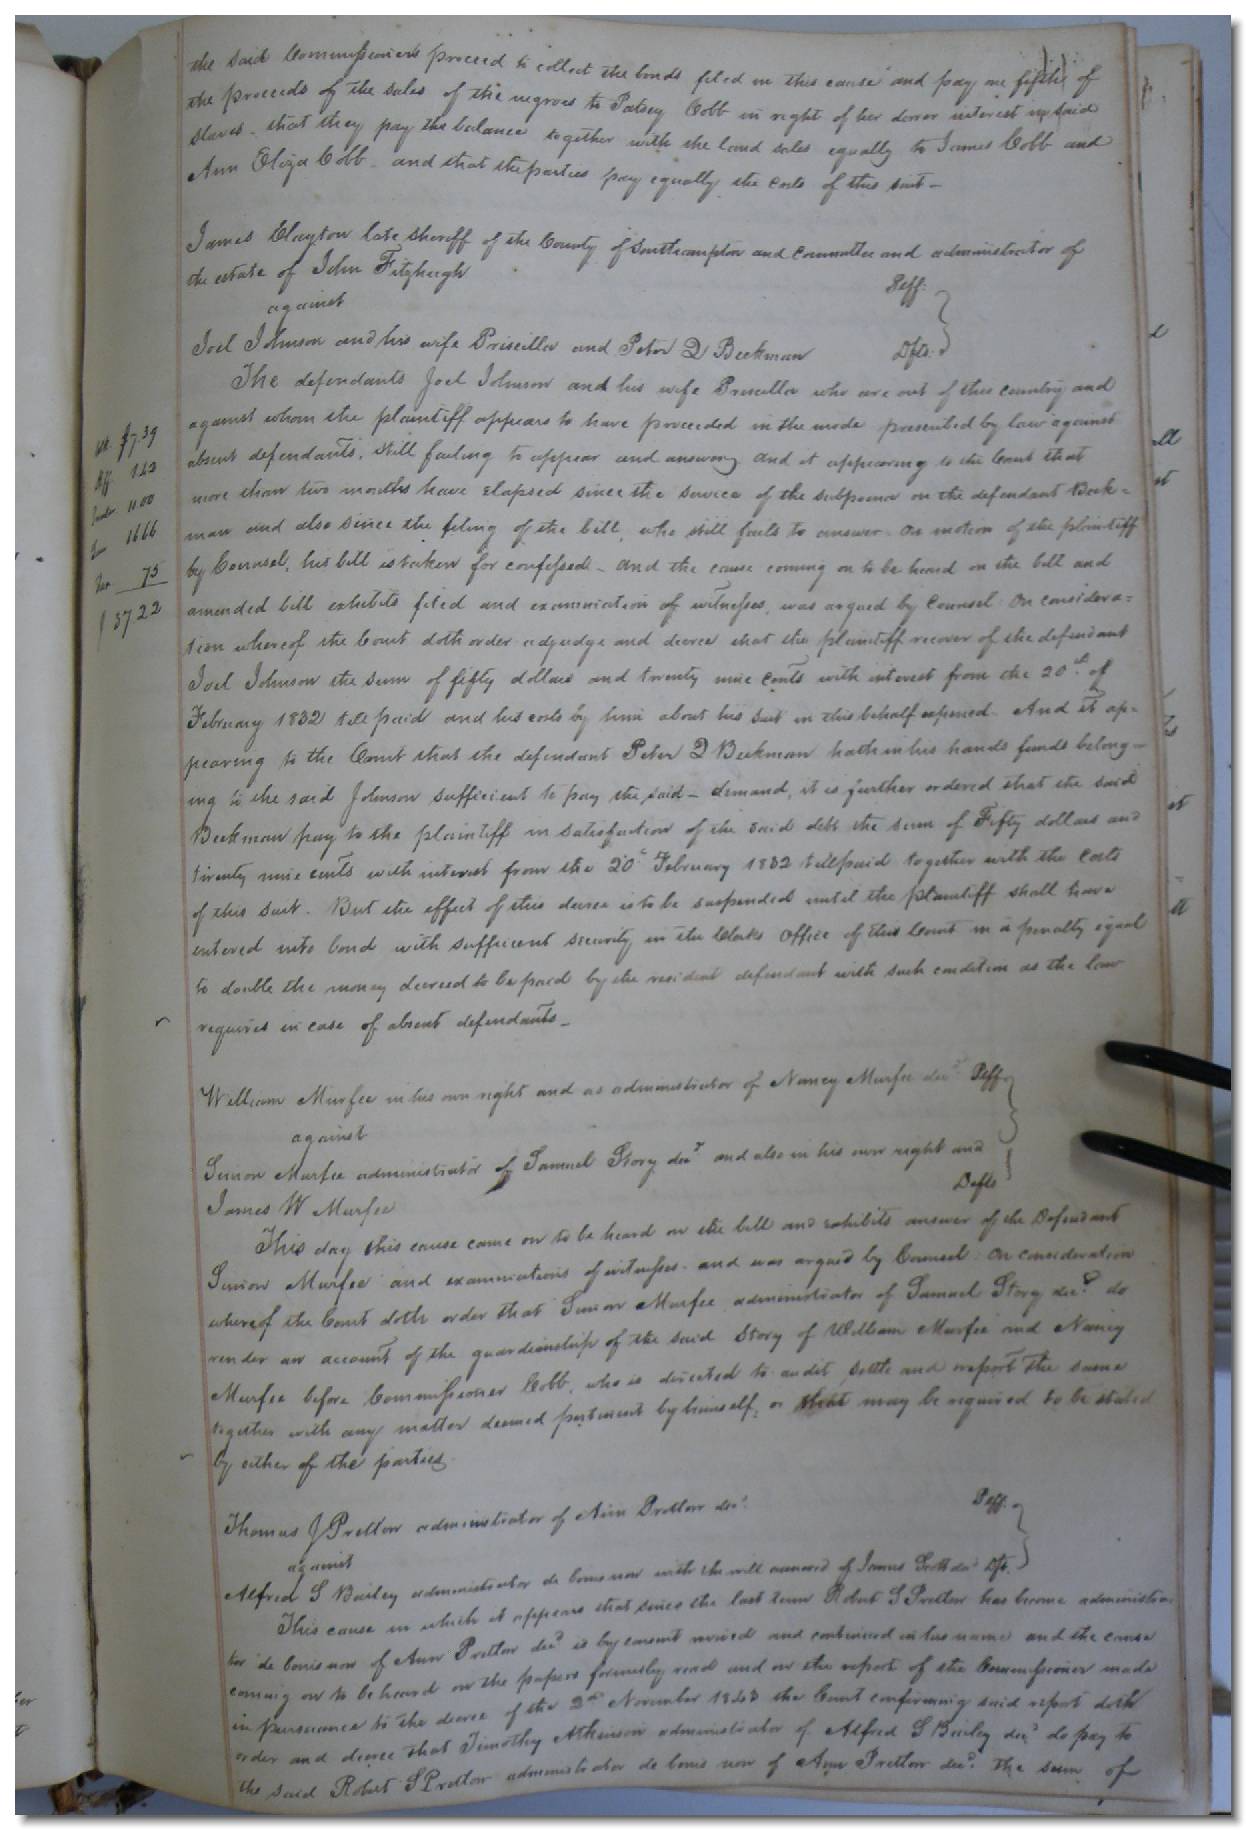 the said Commissioners proceed to collect the bonds filed in this cause and pay one fifth of
the proceeds of the sales of the negroes to Patsey Cobb in right of her dower interest in said
slaves - that they pay the balance together with the land sales equally to James Cobb and
Ann Eliza Cobb - and that the parties pay equally the costs of this suit -
James Clayton late sheriff of the County of Southampton and Committee and administrator of
the estate of John Fitzhugh
Plff.
against
Joel Johnson and his wife Priscilla and Peter D Beekman Dfts.
The defendants Joel Johnson and his wife Priscilla who are out of this country and
against whom the plaintiff appears to have proceeded in the mode prescribed by law against
absent defendants, still failing to appear and answer, and it appearing to the Court that
more than two months have elapsed since the service of the subpoena on the defendant Beek=
man and also since the filing of the bill, who still fails to answer. On motion of the plaintiff
by Counsel, his bill is taken for confessed - and the cause coming on to be heard on the bill and
amended bill exhibits filed and examination of witnesses, was argued by Counsel. On considera=
tion whereof the Court doth order adjudge and decree that the plaintiff recover of the defendant
Joel Johnson the sum of fifty dollars and twenty nine cents with interest from the 20th of
February 1832 till paid and his costs by him about his suit in this behalf expended. And it ap=
pearing to the Court that the defendant Peter D Beekman hath in his hands funds belong-
ing to the said Johnson sufficient to pay the said - demand, it is further ordered that the said
Beekman pay to the plaintiff in satisfaction of the said debt the sum of Fifty dollars and
twenty nine cents with interest from the 20th February 1832 till paid together with the costs
of this suit. But the effect of this decree is to be suspended until the plaintiff shall have
entered into bond with sufficient security in the Clerks Office of this Court in a penalty equal
to double the money decreed to be paid by the resident defendant with such condition as the law
requires in case of absent defendants -
$7.39
11.00
1666
75
$ 3722
William Murfee in his own right and as administrator of Nancy Murfee decd Plff.
against
Simon Murfee administrator of Samuel Story decd and also in his own right and
James W Murfee Defts
This day this cause came on to be heard on the bill and exhibits answer of the Defendant
Simon Murfee and examinations of witnesses - and was argued by Counsel. On consideration
whereof the Court doth order that Simon Murfee administrator of Samuel Story decd do
render an account of the guardianship of the said Story of William Murfee and Nancy
Murfee before Commissioner Cobb, who is directed to audit, settle and report the same
together with any matter deemed pertinent by himself, or that may be required to be stated
by either of the parties.
Thomas J Pretlow administrator of Ann Pretlow decd Plff.
against
Alfred S Bailey administrator de bonis non with the will annexed of James Scott decd Dft.
This cause in which it appears that since the last term Robert S Pretlow has become administra
tor de bonis non of Ann Pretlow decd is by consent revived and continued in his name and the cause
coming on to be heard on the papers formerly read and on the report of the Commissioner made
in pursuance to the decree of the 2nd November 1843 the Court confirming said report doth
order and decree that Timothy Atkinson administrator of Alfred S Bailey decd do pay to
the said Robert S Pretlow administrator de bonis non of Ann Pretlow decd. the sum of